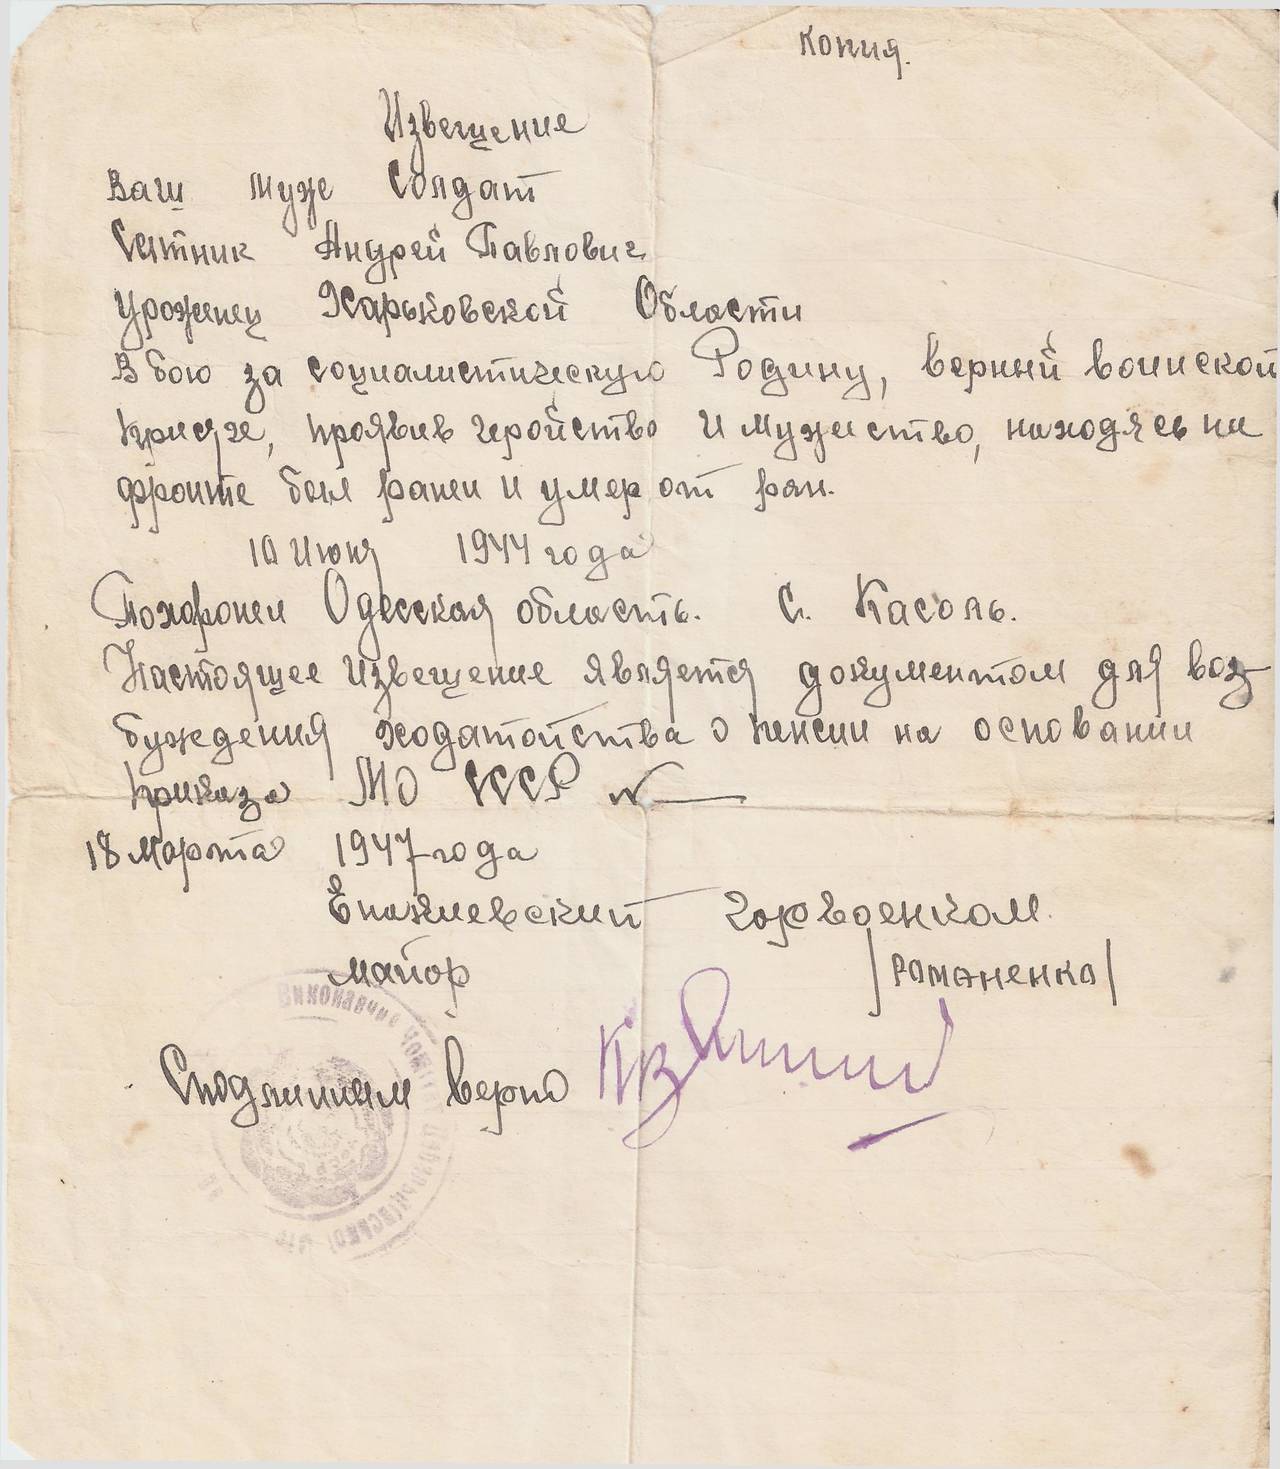 Копия.
Извещение
Ваш муж Солдат
Ситник Андрей Павлович
уроженец Харьковской Области
В бою за социалистическую Родину, верный воинской
присяге, проявив геройство и мужество, находясь на
фронте был ранен и умер от ран.
10 Июня 1944 года
Похоронен Одесская область. С. Касоль.
Настоящее извещение является документом для воз
буждения ходатойства о пенсии на основании
приказа МО СССР N —
18 марта 1947 года
Енакиевский горвоенком
майор /Романенко/
Сподлинным верно
Виконавчий